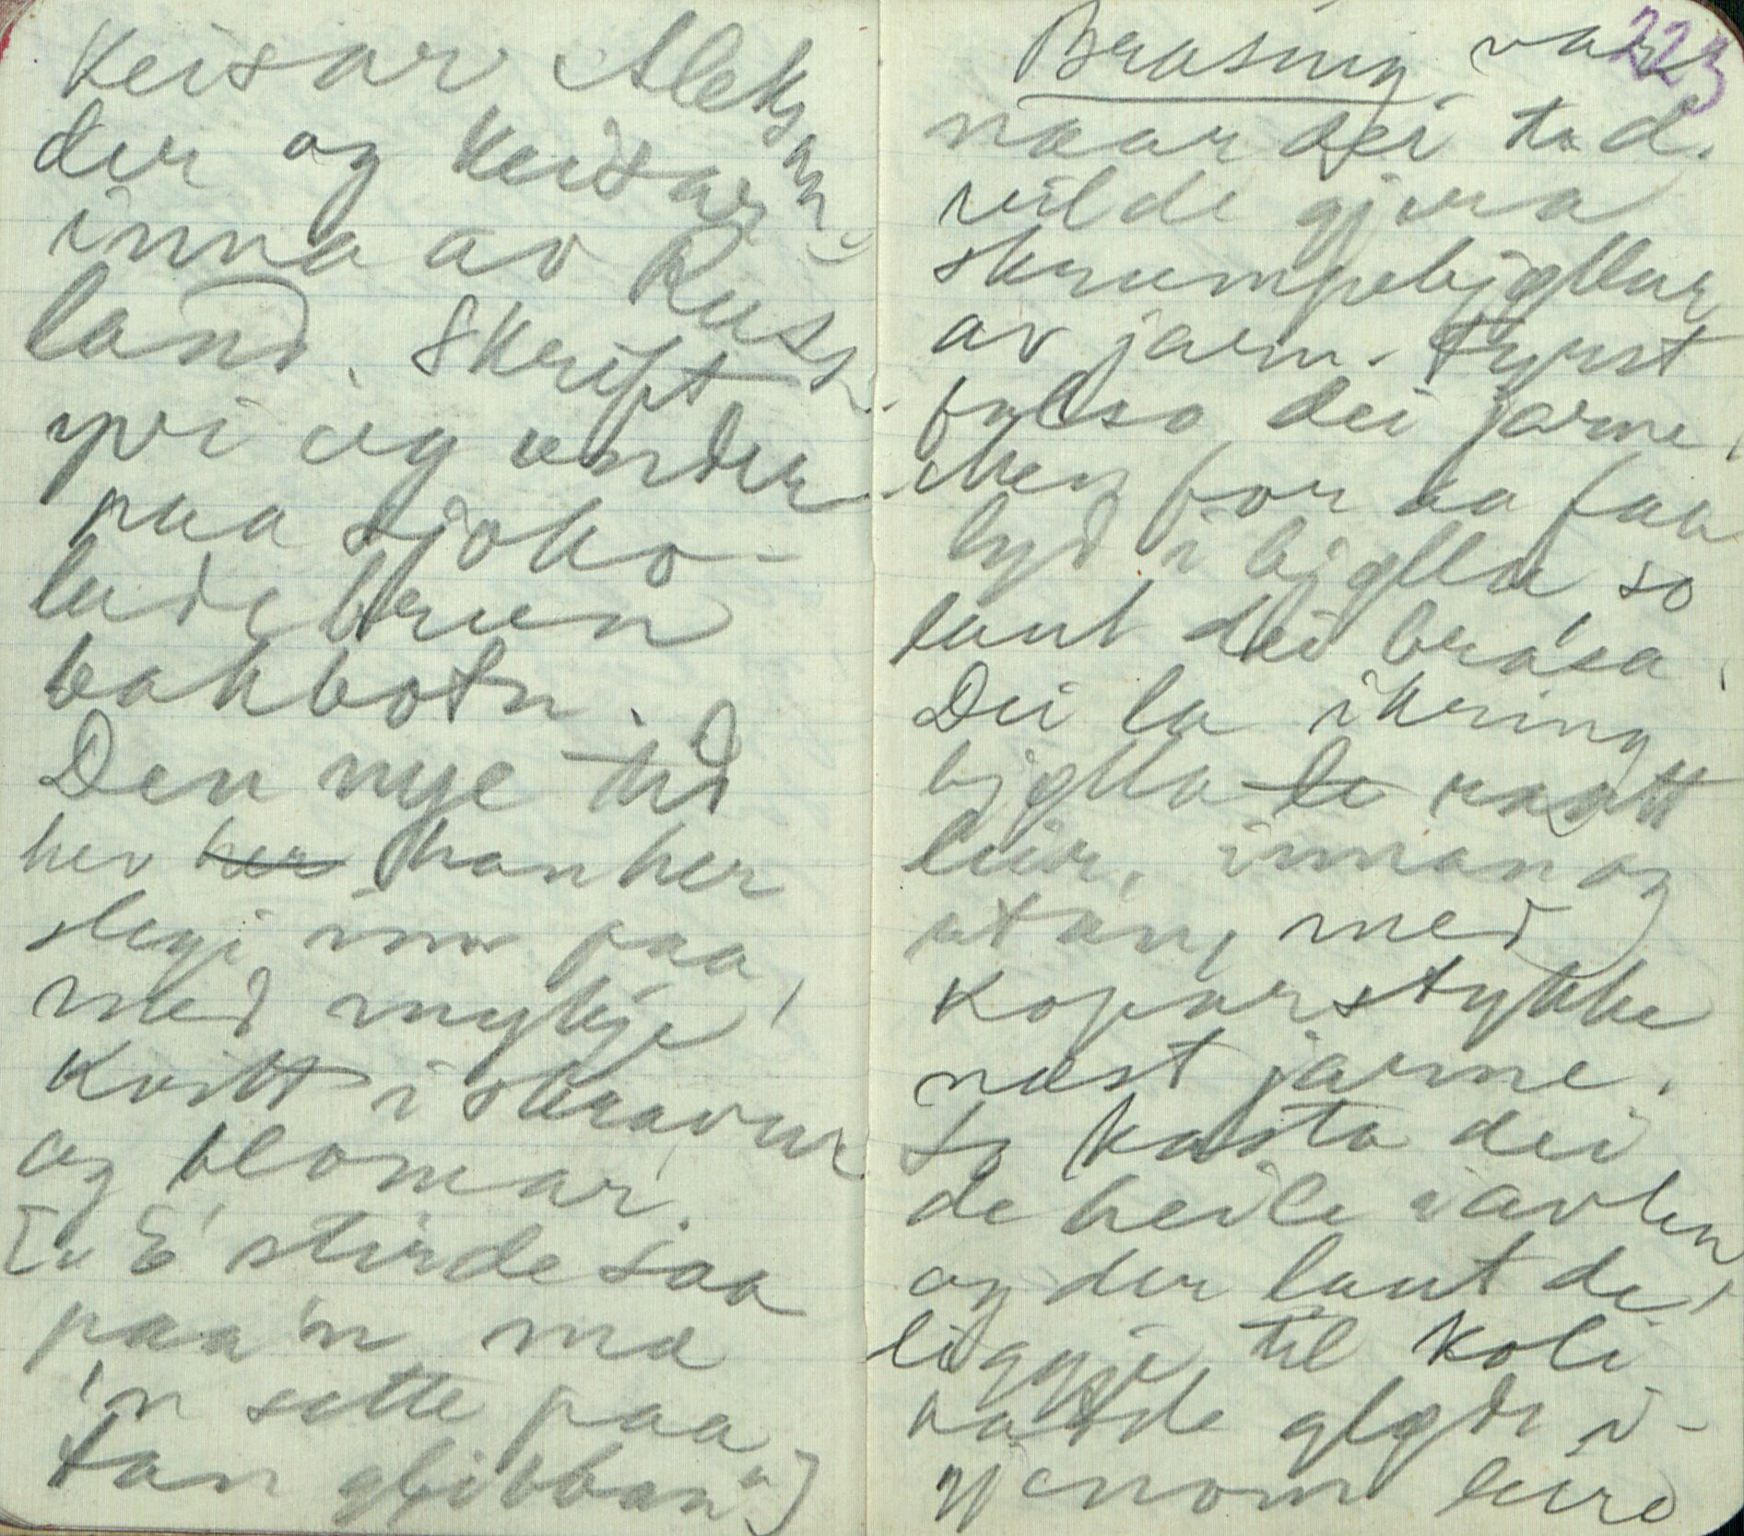 Keisar Aleksan-
der og Keisar-
inna av Russ-
land. Skrift
yvi og under
paa sjoko-
ladebrun
bakbotn.
Den nye tid
hev her han her
slegi inn paa,
med mykje
kvitt i skravur
og blomar.
["E' stirde saa
paa'n mæ
'n sette paa
tan glibban"]
223
Brasing var
naar dei tod.
vilde gjera
skrumpebjøllur
av jarn. Fyrst
falsa dei jarne,
Men for aa faa
lyd i bjølla, so
laut dei brása,
Dei la ikring
bjølla le raatt
leir, innan og
utan, med
Koparstykke
næst jarne.
So kasta dei
de heile i avlen
og der laut de
liggje til koli
raude glødde i-
gjenom leire